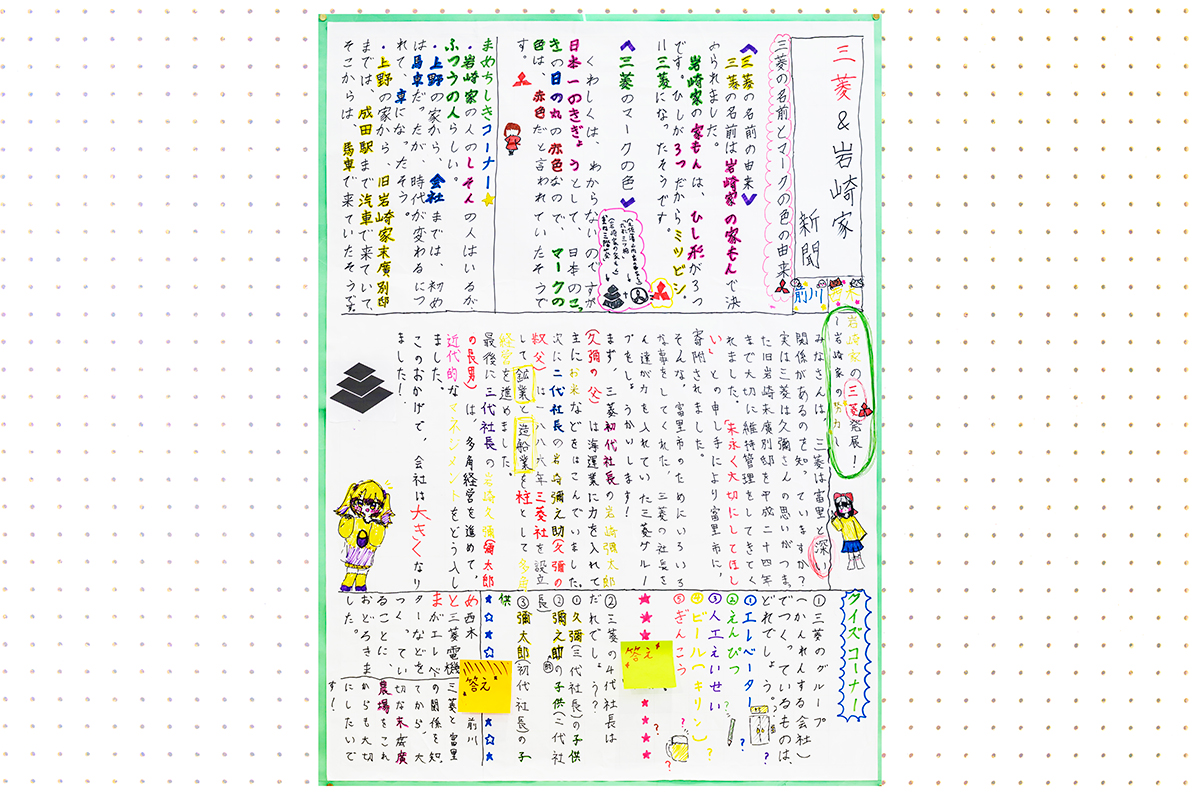 三菱&岩崎家
新聞
前川
三菱の名前とマークの色の由来
〈三菱の名前の由来〉
三菱の名前は岩崎家の家もんで決
められました。
岩崎家の家もんは、ひし形が3つ
です。ひしが3つだからミツビシ
三菱になったそうです。
〈三菱のマークの色〉
くわしくは、わからないのですが
日本一のきぎょうとして、日本のこっ
きの日の丸の赤色なので、マークの
色は、赤色だと言われていたそうで
す。
まめちしきコーナー
・岩崎家の人のしそんの人はいるが、
ふつうの人らしい。
・上野の家から、会社までは、初め
は馬車だったが、時代が変わるにつ
れて、車になったそう。
・上野の家から、旧岩崎家末廣別邸
までは、成田駅まで汽車で来ていて、
そこからは、馬車で来ていたそうです。
岩崎家の三菱発展!
〜岩崎家の努力〜
みなさんは、三菱は富里と深い
関係があるのを知っていますか?
実は三菱は久彌さんの思いがつま
た旧岩崎末廣別邸を平成二十四年
まで大切に維持管理をしてきてく
れました。「末永く大切にしてほし
い」との申し手により富里市に、
寄附されました。
そんな、富里市のためにいろいろ
な事をしてくれた、三菱の社長を
人達が力を入れていた三菱グルー
プをしょうかいします!
まず、三菱初代社長の岩崎彌太郎
(久彌の父)は海運業に力を入れて
主にお米などをはこんでいました。
次に二代社長の岩崎彌之助(久彌の
叔父)は一八八六年三菱社を設立
して鉱業と造船業を柱として多角
経営を進めました。
最後に三代社長の岩崎久彌(彌太郎
の長男)は、多角経営を進めて、
近代的なマネジメントをどう入し
ました。
このおかげで、会社は大きくなり
ました!
クイズコーナー
①三菱のグループ
(かんれんする会社)
でつくっているものは、
どれでしょう。
①エレベーター
②えんぴつ
③人工えいせい
④ビール(キリン)
⑤ぎんこう
答え
②三菱の4代社長は
だれでしょう?
①久彌(三代社長)の子供
②彌之助の子供(二代社
長)
③彌太郎(初代社長)の子
供
答え
まとめ
西木
三菱電機
がエレベ
ーターなどを
つくってい
ることに、
おどろきま
した。
前川
三菱と富里
の関係を知
てから、大
切な末廣
農場をこれ
からも大切
にしたいで
す!